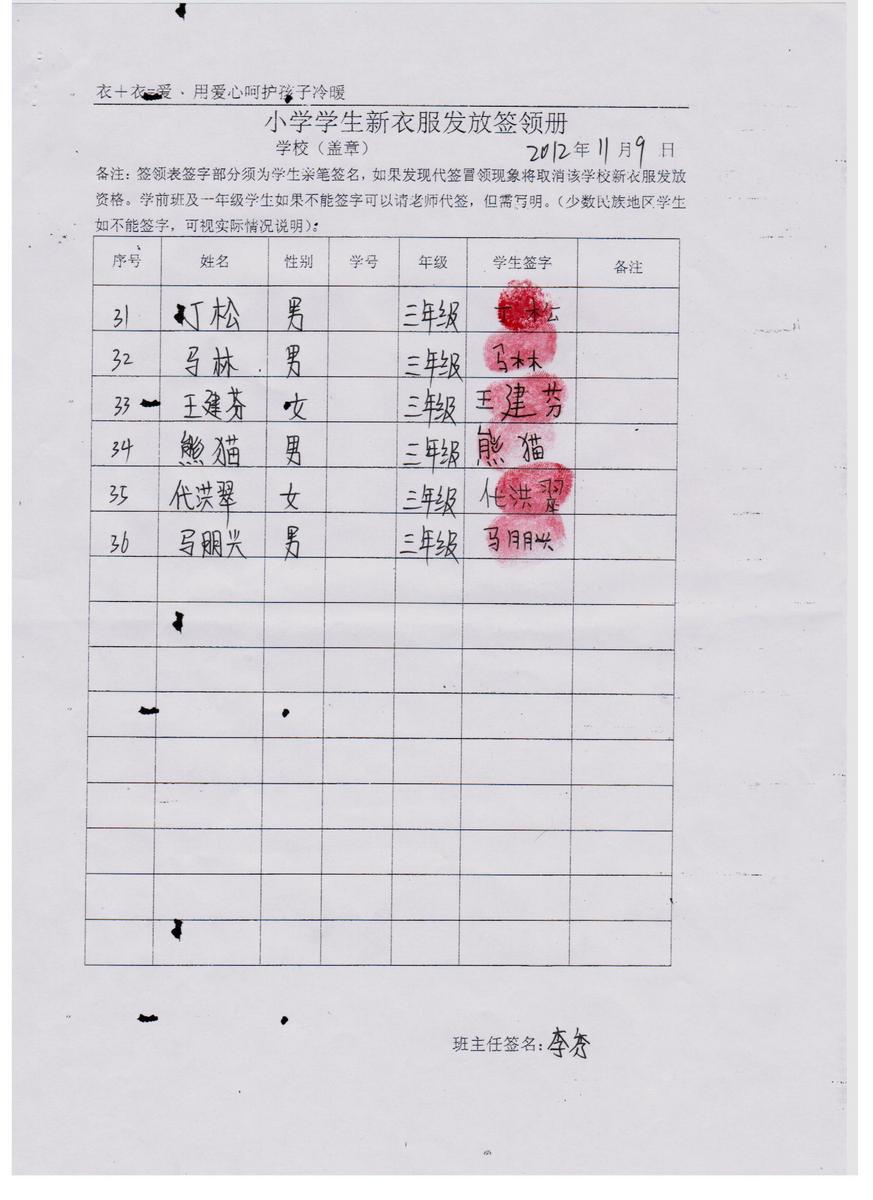 衣＋衣=爱、用爱心呵护孩子冷暖
小学学生新衣服发放签领册
学校（盖章） 2012年11月9日
备注：签领表签字部分须为学生亲笔签名，如果发现代签冒领现象将取消该学校新衣服发放
资格。学前班及一年级学生如果不能签字可以请老师代签，但需写明。（少数民族地区学生
如不能签字，可视实际情况说明）：
序号 姓名 性别 学号 年级 学生签字 备注
31 丁松 男 三年级 丁松
32 马林 男 三年级 马林
33 王建芬 女 三年级 王建芬
34 熊猫 男 三年级 熊猫
35 代洪翠 女 三年级 代洪翠
36 马朋兴 男 三年级 马朋兴
班主任签名：李秀